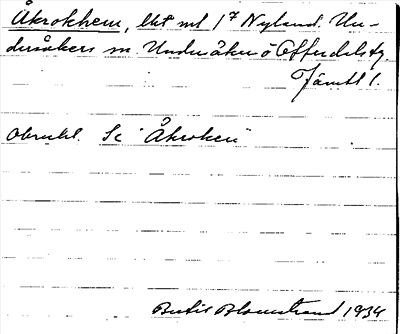 Åkrokhem, lht mt 1⁷ Nyland. Un-
dersåkers sn. Undersåker o Offerdals tg.
Jämtl l.
Obrukl. Se "Åkroken"
Bertil Blomstrand 1934